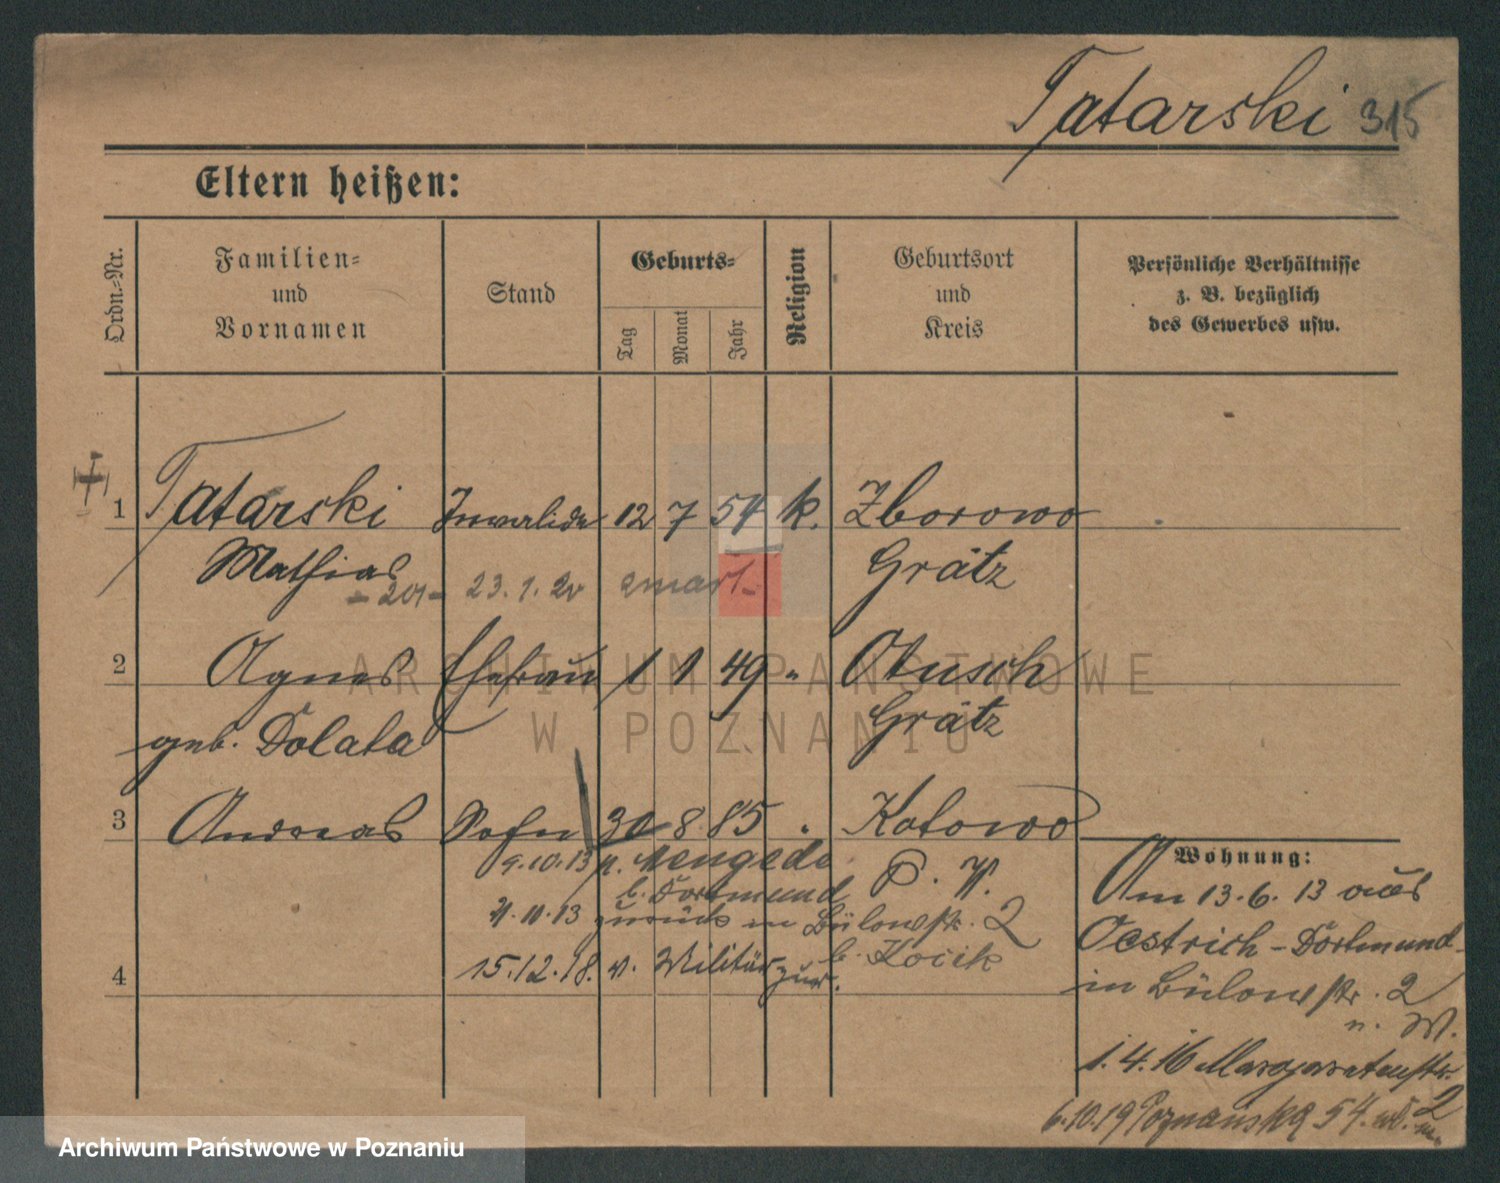 Tatarski 315
Eltern heißen:
Ordn.-Nr.
Familien-
und
Vornamen
Stand
Geburts-
Tag
Monat
Jahr
Religion
Geburtsort
und
Kreis
Persönliche Verhältnisse
z. B. bezüglich
des Gewerbes usw.
1 Tatarski Invalide 12 7 54 k. Zborowo
Mathias Grätz
23. 1. 20 zmarł
2 Agnes Ehefrau 1 1 49 " Otusch
geb. Dolata Grätz
3 Andreas Sohn 30 8 85 " Kotowo
9.10.13 n. Mengede P. W.
b. Dortmund
zurück in Bülowstr. 2
b. Kocik
4 15.12.18. v. Militär zur.
Wohnung:
Am 13.6.13 aus
Oestrich-Dortmund
in Bülowstr. 2
n. W.
1.4.16 Margaretenstr. 2
6.10.19 Poznanska 54.
ARCHIWUM PAŃSTWOWE
W POZNANIU
Archiwum Państwowe w Poznaniu